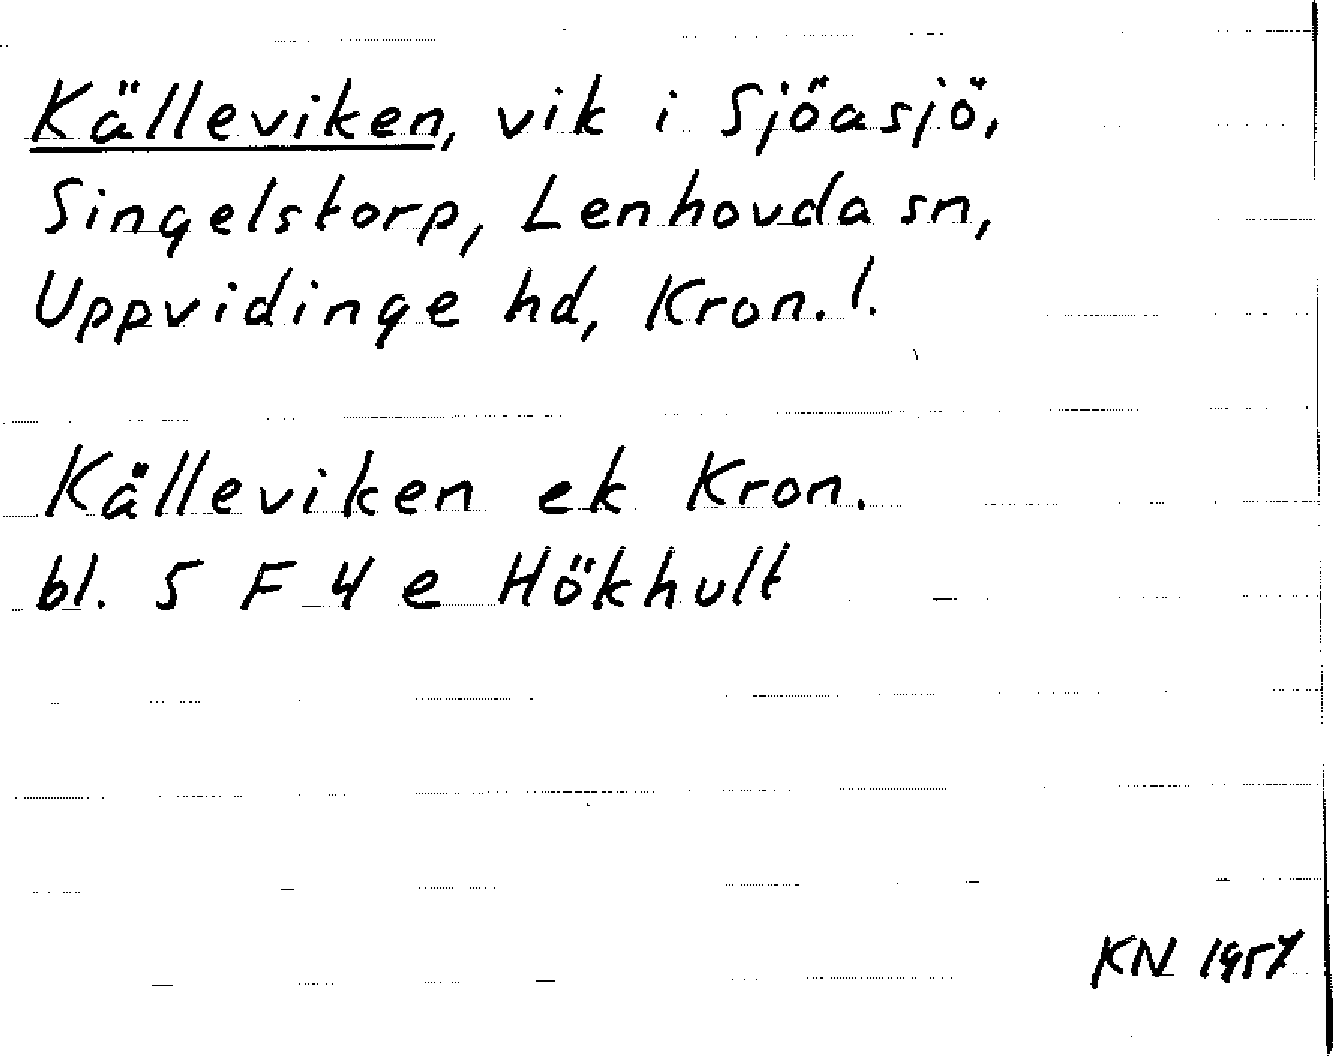 Källeviken, vik i Sjöasjö,
Singelstorp, Lenhovda sn,
Uppvidinge hd, Kron. l.
Källeviken ek Kron.
bl. 5 F 4 e Hökhult
KN 1957